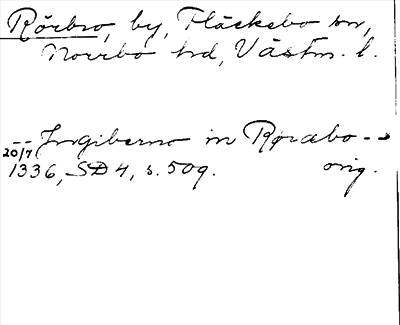 Rörbo, by, Fläckebo sn,
Norrbo hd, Västm. l.
-- Ingiberno in Røræbo --
20/7 1336, SD 4, s. 509. orig.